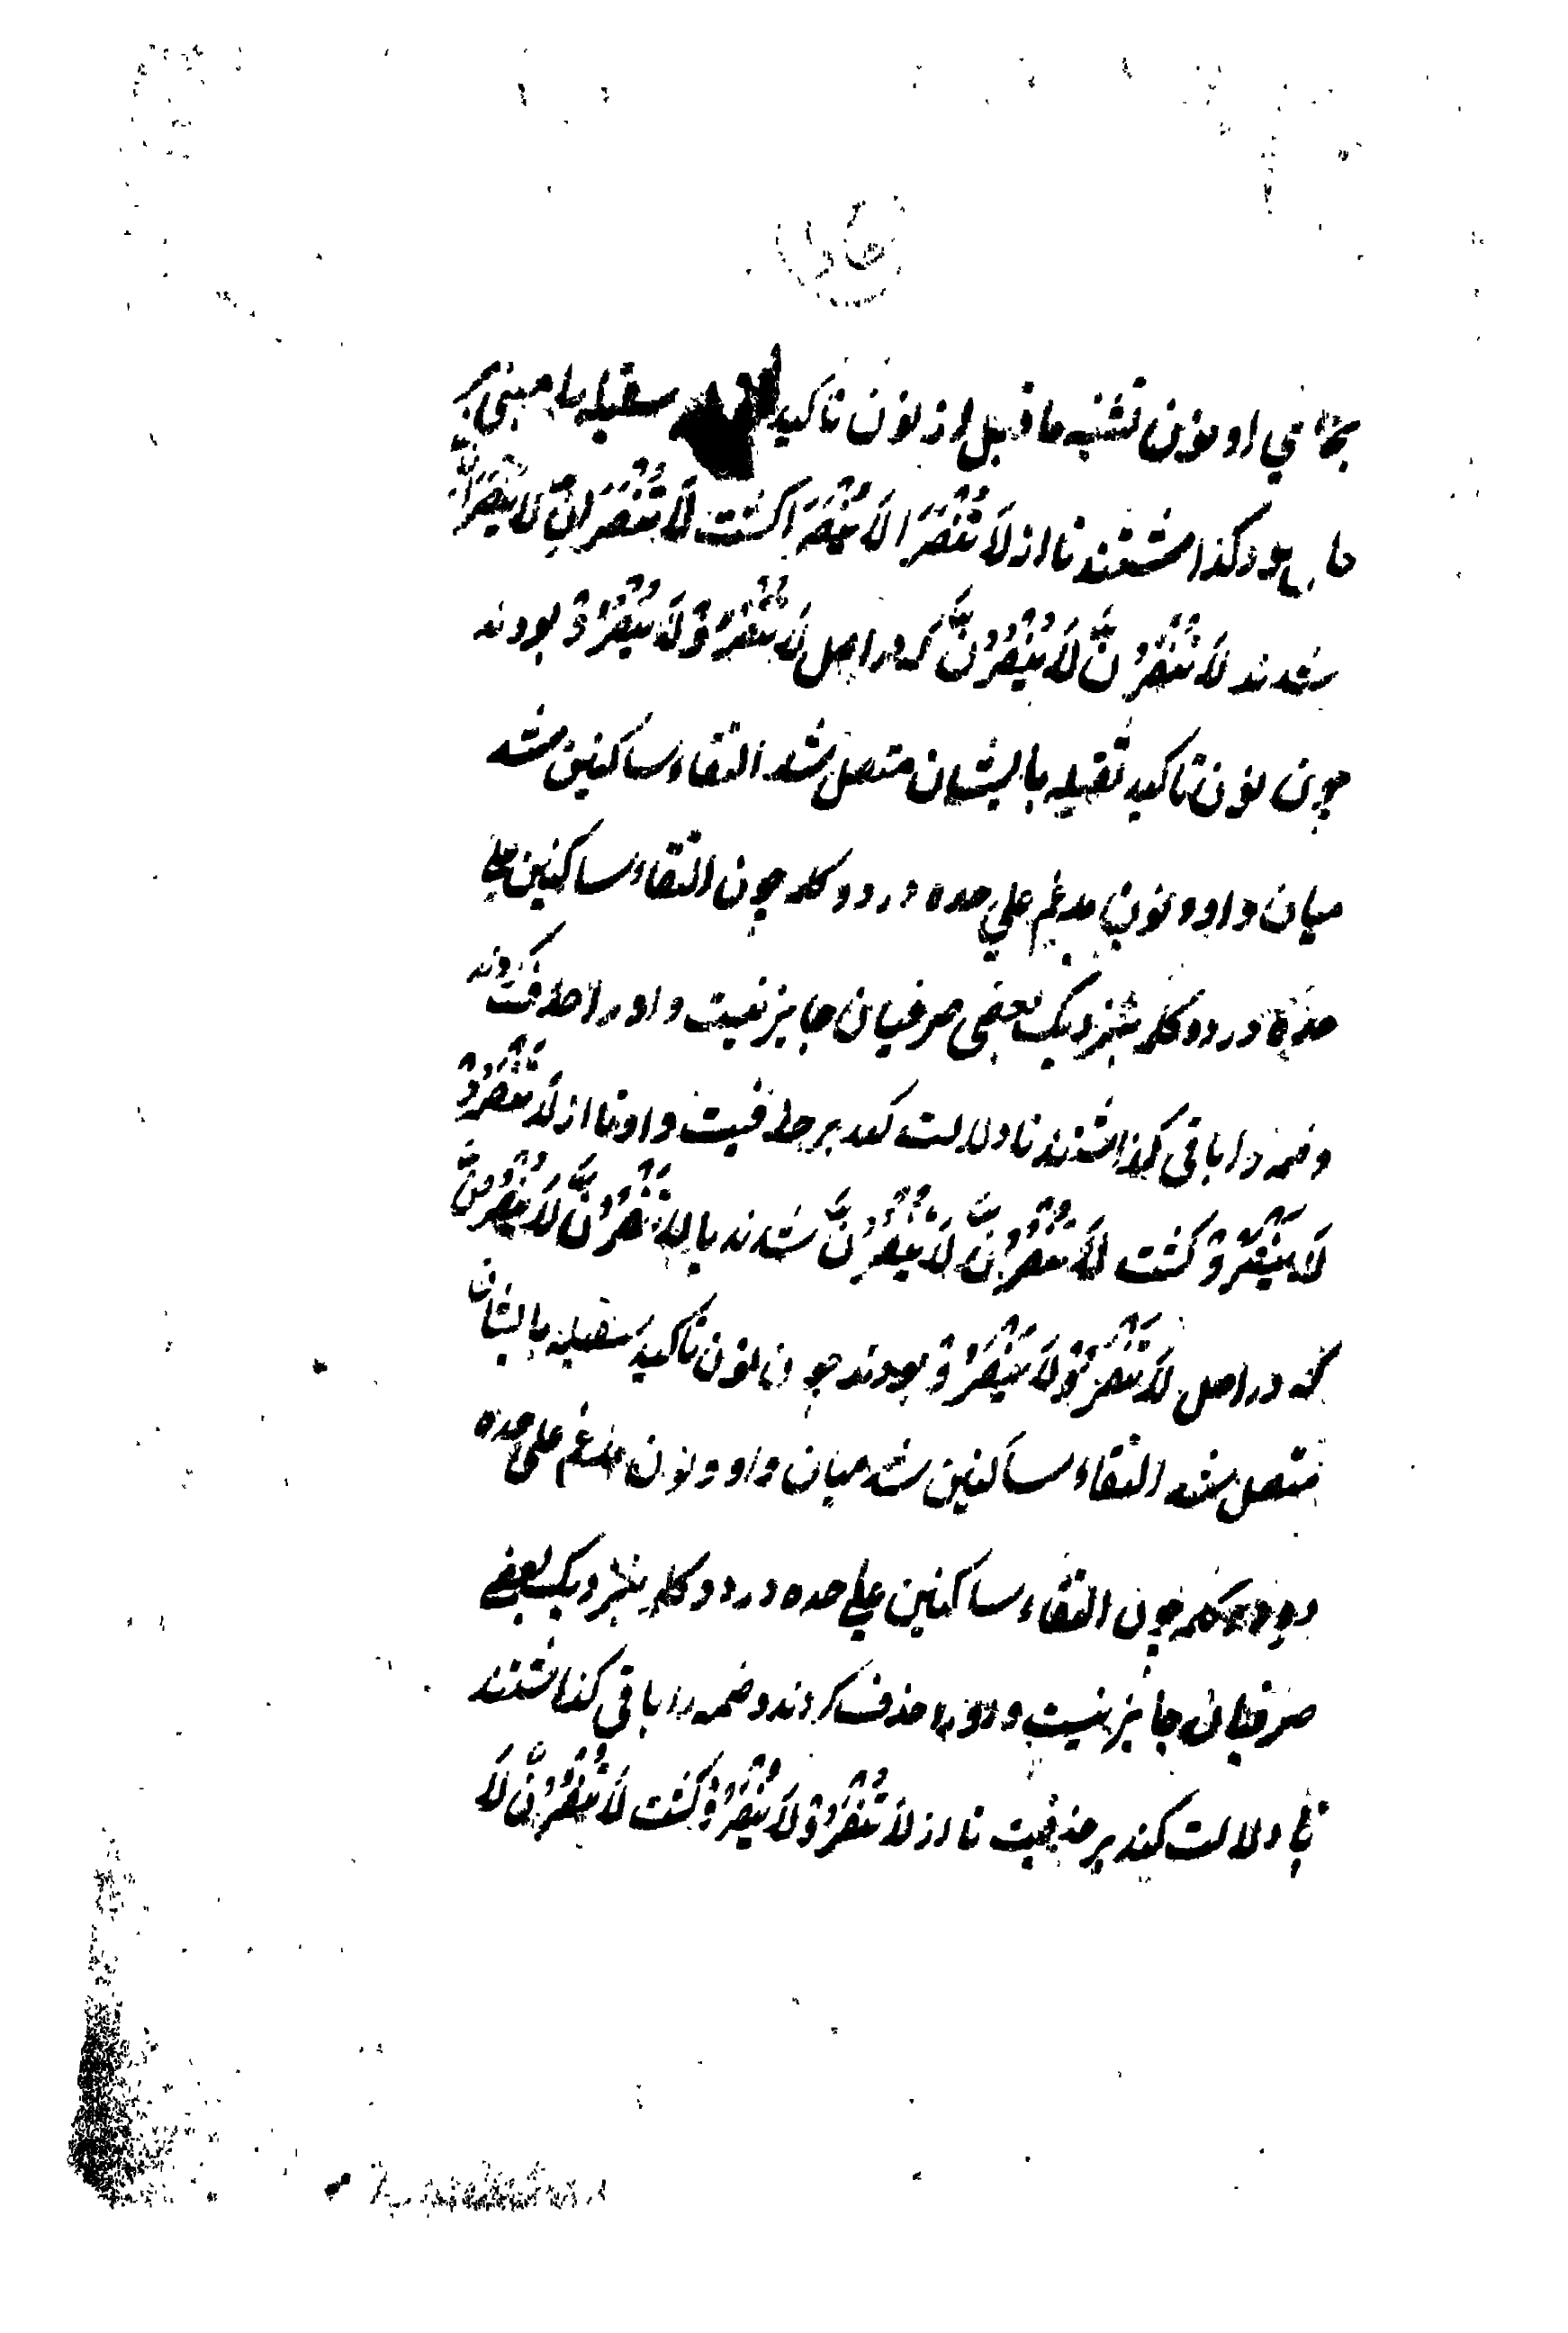 بجای او نون تثنیه ما قبل از نون تاکید ثقیله را مبنی بر
حال بود گذاشتند تا از لَا تُنْصَرَا لَا يُنْصَرَا گشت لَا تُنْصَرَانِّ لَا يُنْصَرَانِّ
شدند لَا تُنْصَرُنَّ لَا يُنْصَرُنَّ که در اصل لَا تُنْصَرُوْ لَا يُنْصَرُوْ بودند
چون نون تاکید ثقیله بایشان متصل شد التقاء ساکنین شد
میان واو و نون مدغم علی حده در دو کلمه چون التقاء ساکنین علی
حده در دو کلمه بنزدیک بعضی صرفیان جایز نیست واو را حذف کردند
و ضمه را باقی گذاشتند تا دلالت کند بر حذفیت واو تا از لَا تَنْصُرُوْ
لَا يَنْصُرُوْ گشت لَا تَنْصُرُنَّ لَا يَنْصُرُنَّ شدند یا لَا تَنْصُرُنَّ لَا يَنْصُرُنَّ
که در اصل لَا تَنْصُرُوْ لَا يَنْصُرُوْ بودند چون نون تاکید ثقیله بایشان
متصل شد التقاء ساکنین شد میان واو و نون مدغم علی حده
در دو کلمه چون التقاء ساکنین علی حده در دو کلمه بنزدیک بعضے
صرفیان جایز نیست واو را حذف کردند و ضمه را باقی گذاشتند
تا دلالت کند بر حذفیت تا از لَا تُنْصَرُوْ لَا يُنْصَرُوْ گشت لَا تُنْصَرُنَّ لَا